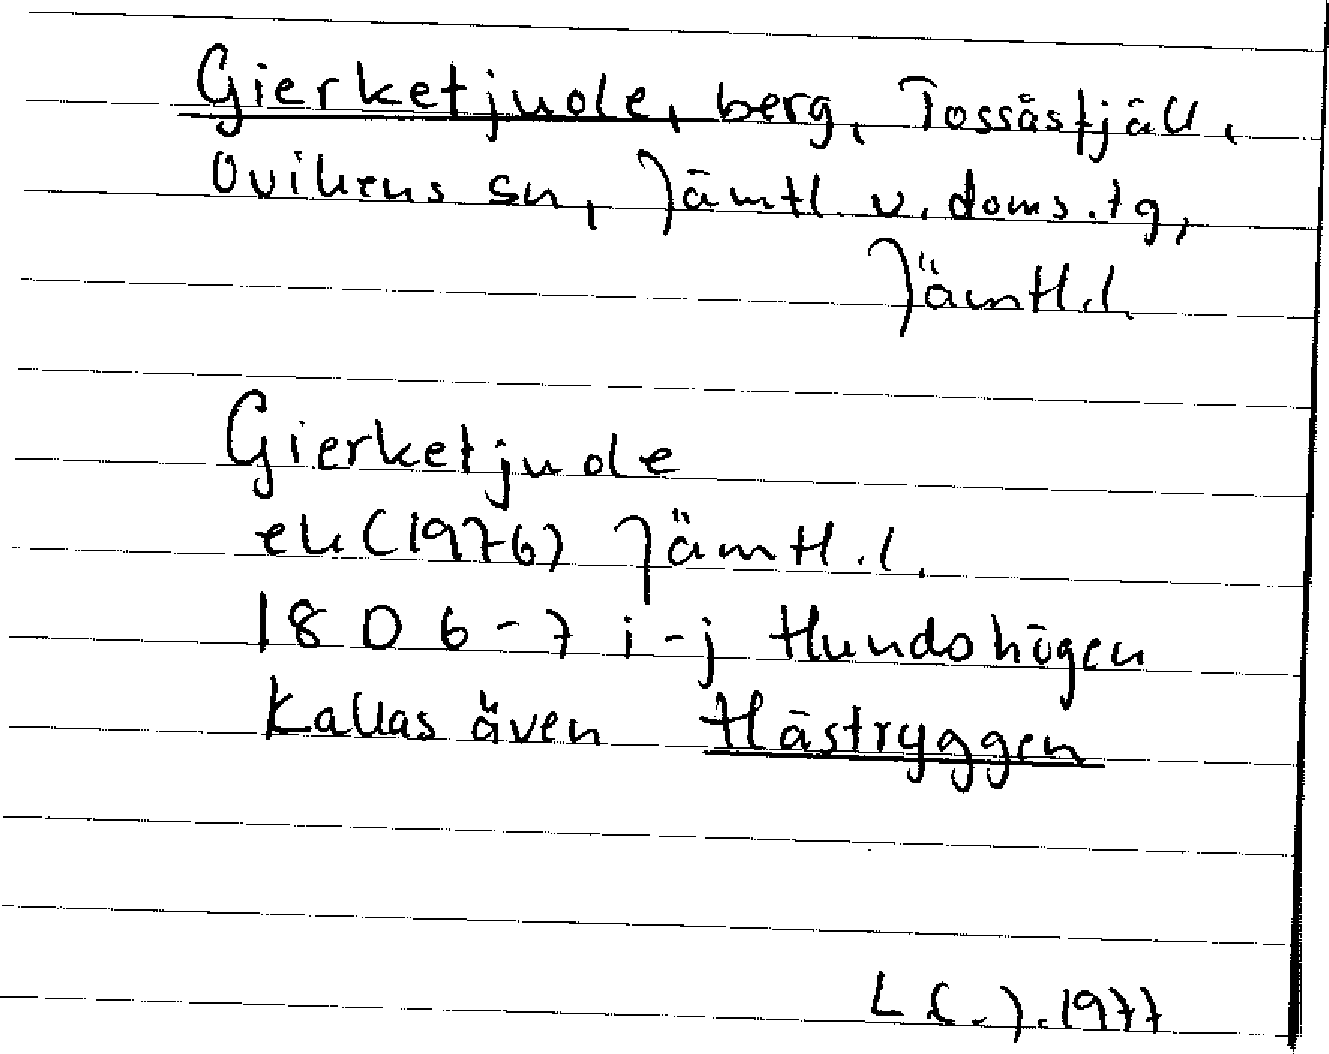 Gierketjuole, berg, Tossåsfjäll,
Ovikens sn, Jämtl. v. doms.tg,
Jämtl.l
Gierketjuole
ek (1976) Jämtl.l.
18 D 6-7 i-j Hundshögen
Kallas även Hästryggen
1977